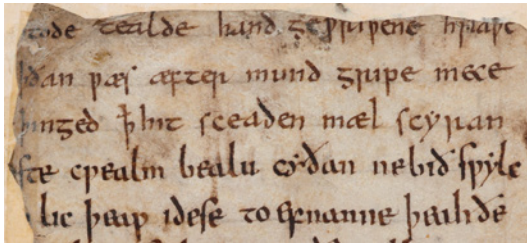 tode tealde hand geƿriþene hraþe
ðan ƿæs æfter mund gripe mece
þinged ꝥ hit sceaden mæl scyran
ste cƿealm bealu cyðan ne bið sƿylc
lic þeaƿ idese to efnanne þeah ðe